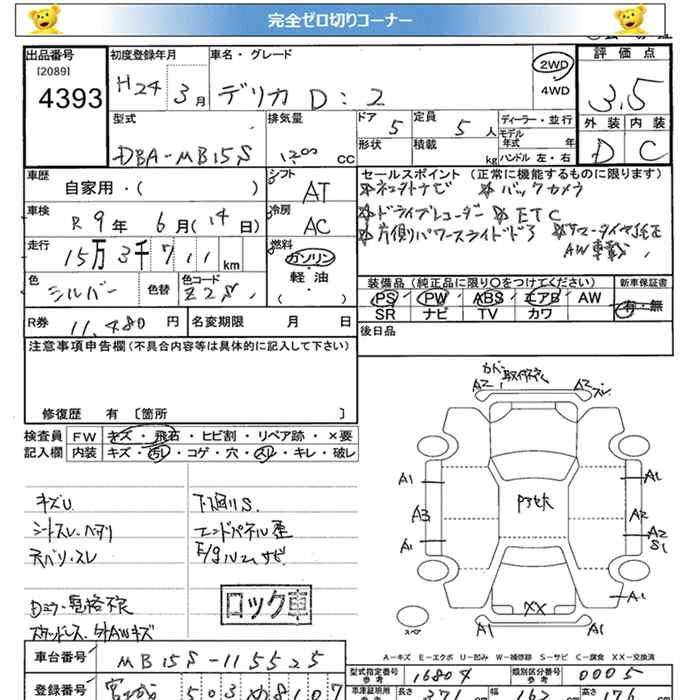 完全ゼロ切りコーナー
出品番号 初度登録年月 車名・グレード 評価点
[2089] 4393 H24年 3月 デリカ D:2 2WD 4WD 3.5
外装 内装
D C
型式 排気量 ドア 5 定員 5人 ディーラー・並行
DBA-MB15S 1200 cc 形状 積載 kg モデル年式 年 ハンドル 左・右
車歴 シフト セールスポイント (正常に機能するものに限ります)
自家用・( ) AT ※ネンタナビ ※バックカメラ
車検 冷房 ※ドライブレコーダー ※ETC
R9年 6月(14日) AC ※片側パワースライドドア ※サマータイヤ純正
走行 燃料 AW車載
15万3千711km ガソリン
軽油
( )
色 色替 色コード 装備品 (純正品に限り〇をつけてください) 新車保証書
シルバー Z2S PS PW ABS エアB AW 有・無
SR ナビ TV カワ
R券 11,480円 名変期限 月 日 後日品
注意事項申告欄(不具合内容等は具体的に記入して下さい)
修復歴 有 [箇所 ]
検査員 FW キズ・飛石・ヒビ割・リペア跡・×要
記入欄 内装 キズ・汚レ・コゲ・穴・スレ・キレ・破レ
キズU 下廻りS
シートスレ・ヘタリ エンドパネル歪
天バリ・スレ E/gルームサビ
スタッドレス・外AWキズ
ロック車
カバー取付不良
A2 A2 ズレ
A1 A1
A3 A2
A2
A1 S1
A1
XX
スペア A1 A1
A-キズ E-エクボ U-凹み W-補修跡 S-サビ C-腐食 XX-交換済
車台番号 MB15S-115525 型式指定番号 参考 16804 類別区分番号 参考 0005
登録番号 宮城 503 8107 車庫証明用 参考 長さ 371 cm 幅 162 cm 高さ 176 cm